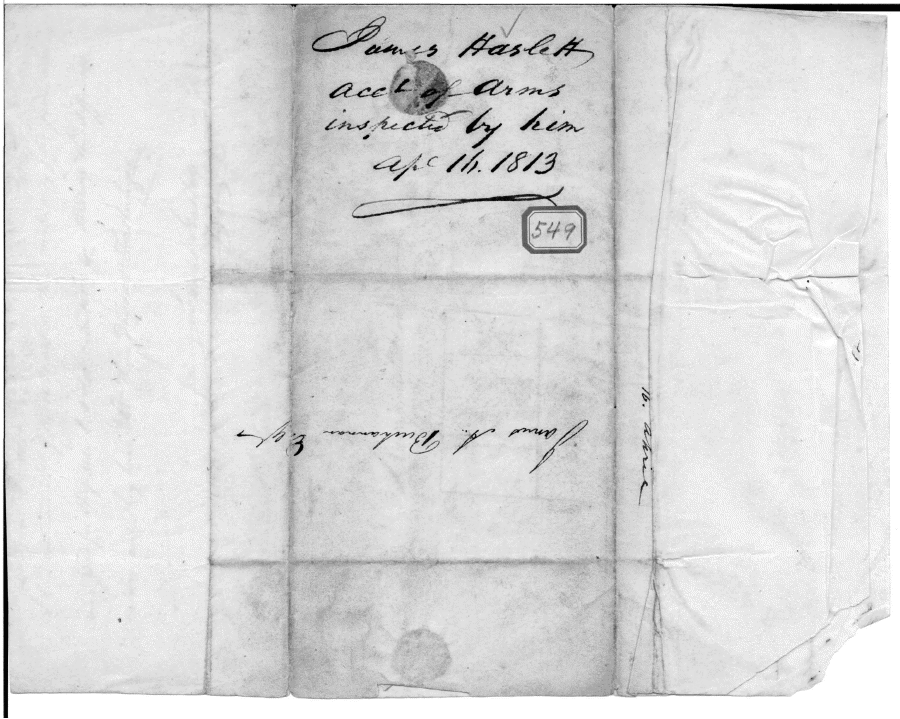 James Haslett
acct of Arms
inspected by him
apl 16. 1813
549
James A. Buchanan Esqr
16. April